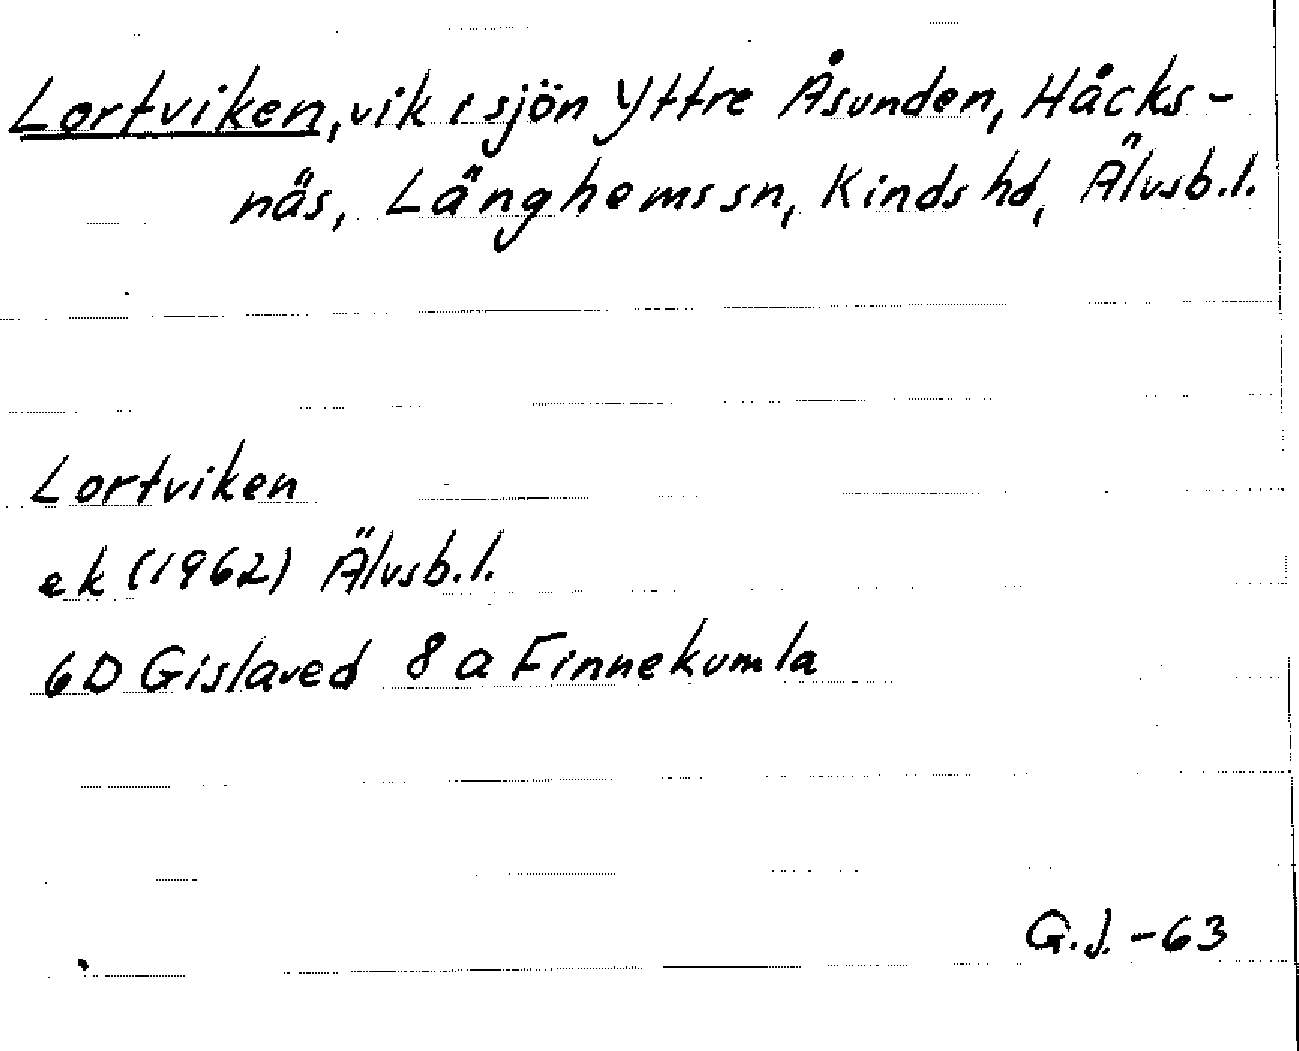 Lortviken, vik i sjön Yttre Åsunden, Håcks-
näs, Länghems sn, Kinds hd, Älvsb.l.
Lortviken
ek (1962) Älvsb.l.
6D Gislaved 8 a Finnekumla
G.J. -63